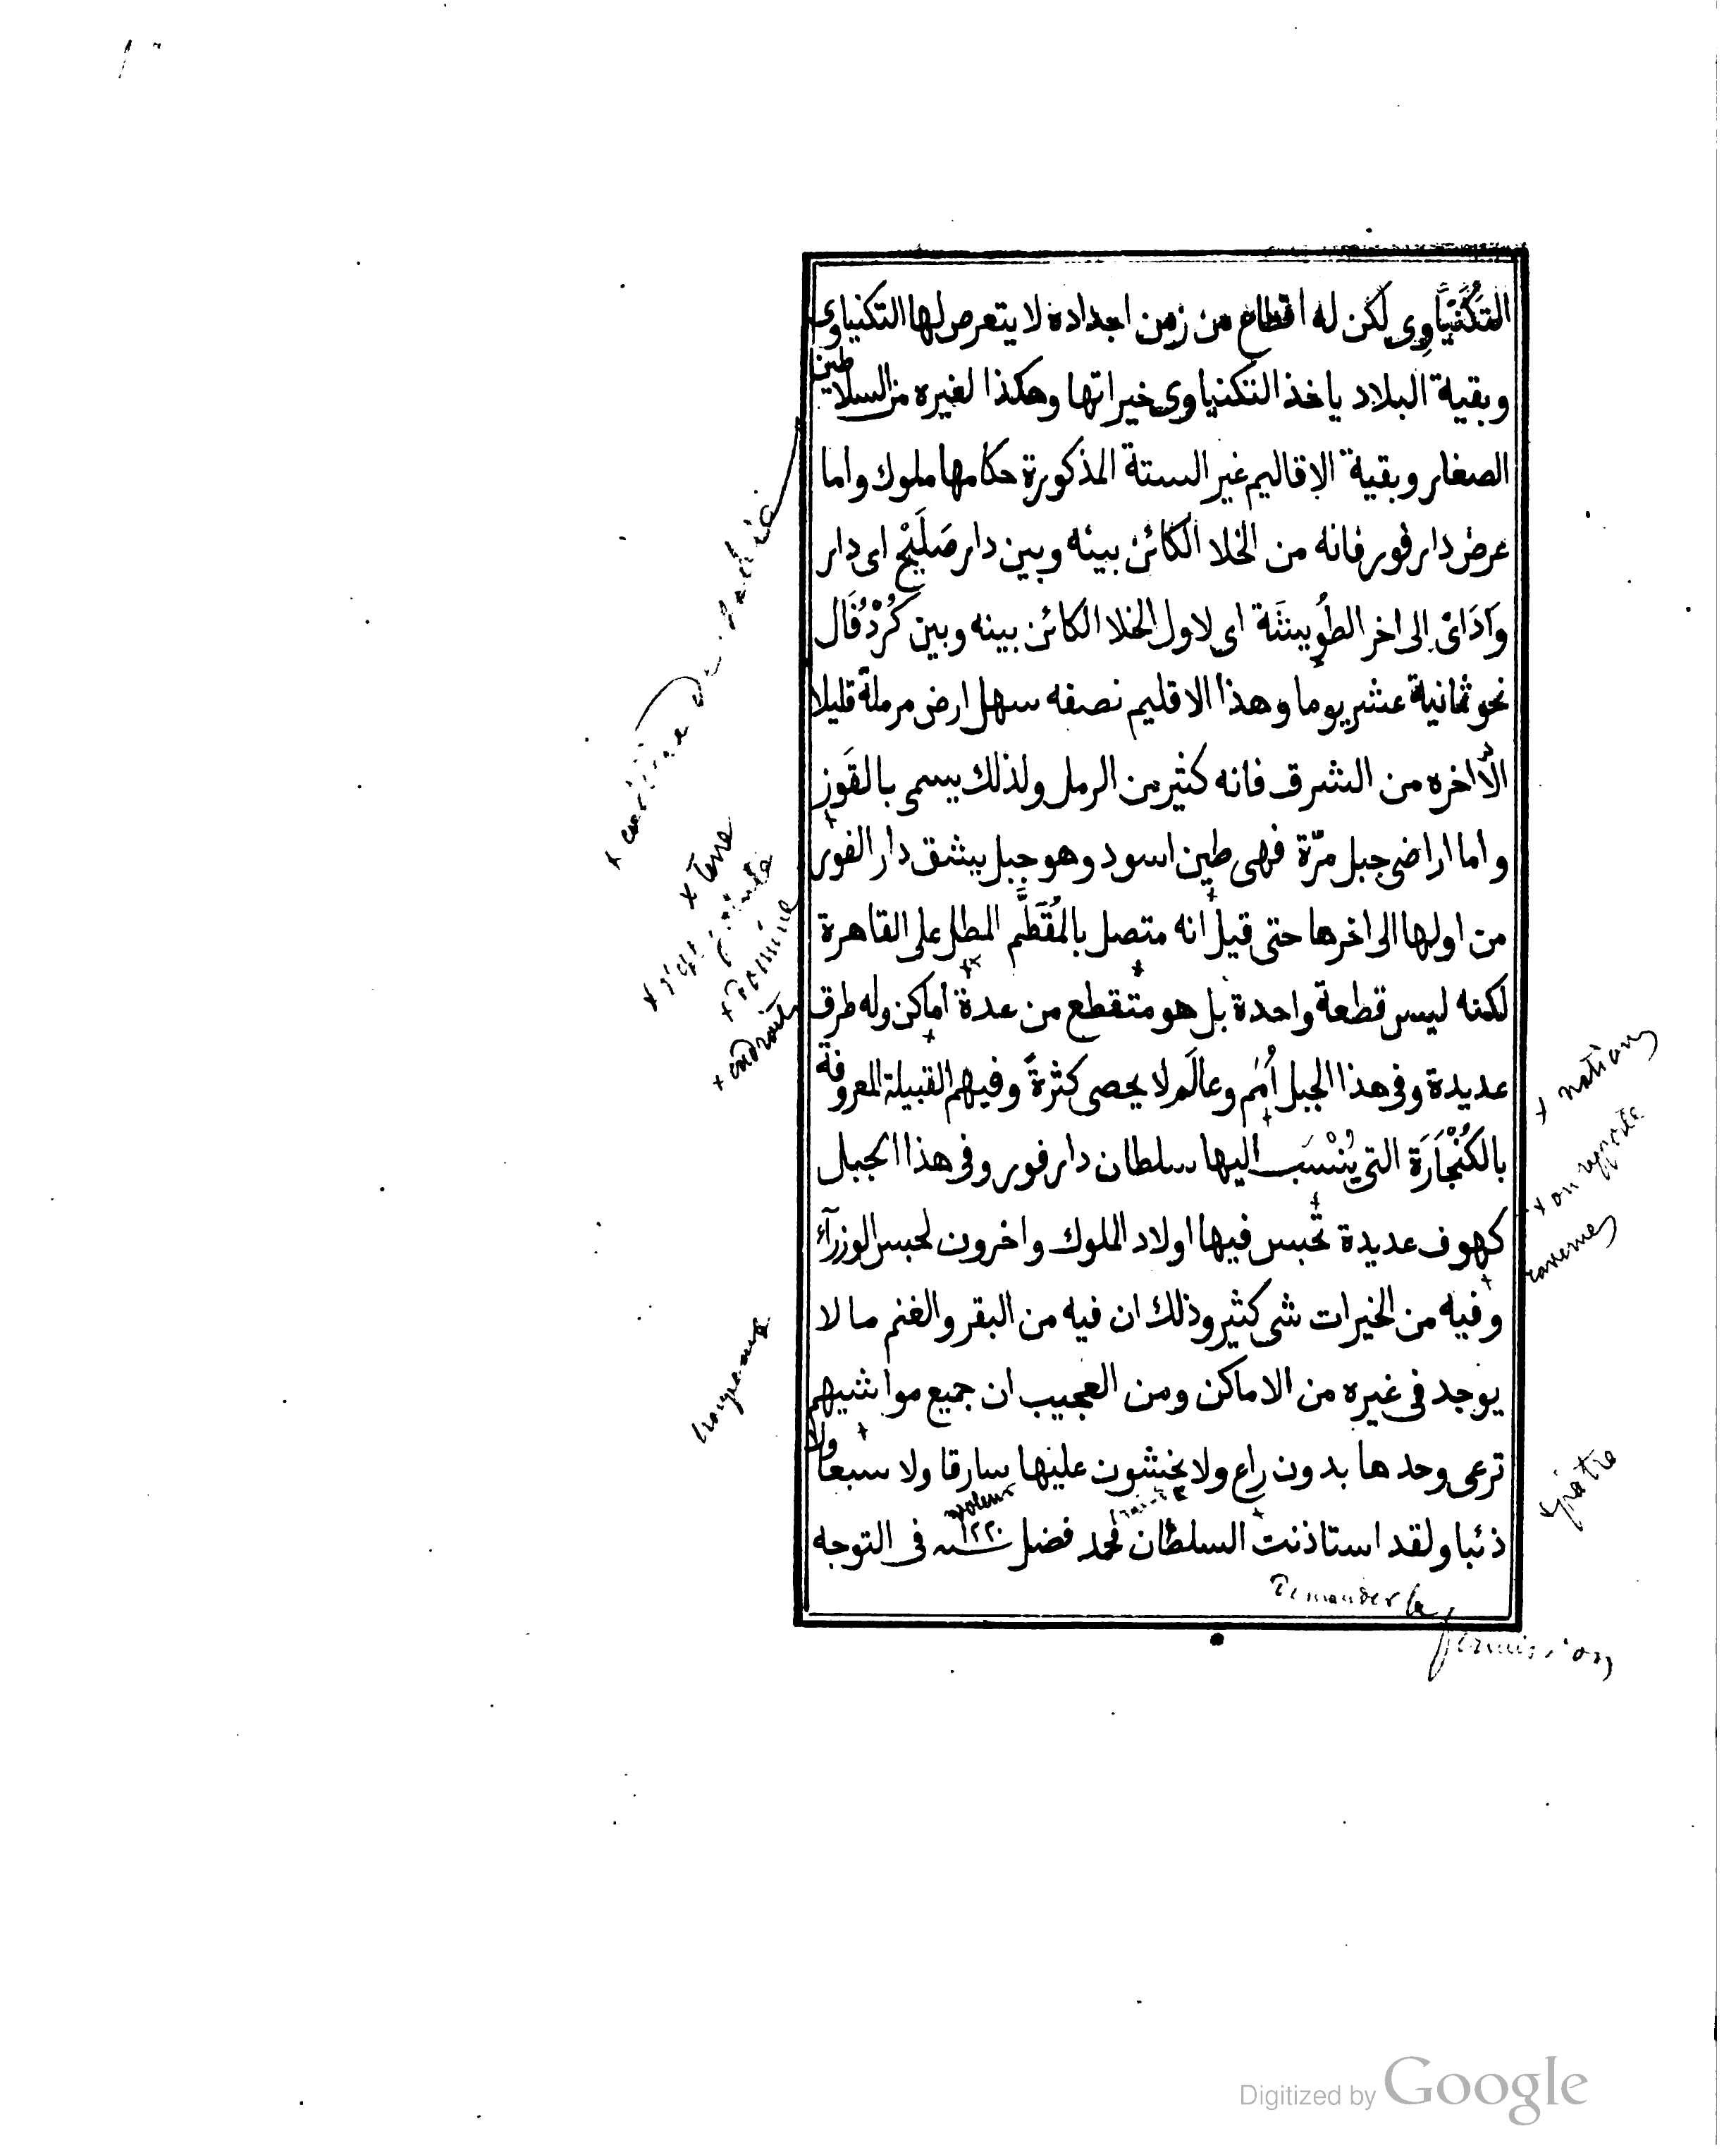 التَكَنَيَّاوِى لكن له اقطاع من زمن اجداده لا يتعرض لها التكنياوى
وبقية البلاد ياخذ التكنياوى خيراتها وهكذا لغيره من السلاطين
الصغار وبقية الاقاليم غير الستة المذكورة حكامها ملوك واما
عرض دار فور فانه من الخلا الكائن بينه وبين دار صَلَيْح اى دار
وَادَاىْ الى اخر الطُوِيشَة اى لاول الخلا الكائن بينه وبين كُرْدُفَال
نحو ثمانية عشر يوما وهذا الاقليم نصفه سهل ارض مرملة قليلا
الّا اخره من الشرق فانه كثير من الرمل ولذلك يسمى بالقَوز
واما اراضى جبل مرّة فهى طين اسود وهو جبل يشق دار الفور
من اولها الى اخرها حتى قيل انه متصل بالمُقَطَّم المطل على القاهرة
لكنه ليس قطعة واحدة بل هو متقطع من عدة اماكن وله طرق
عديدة وفى هذا الجبل أُمَم وعالَم لا يحصى كثرةً وفيهم القبيلة المعروفة
بالكُنْجَارَة التى يُنْسَب اليها سلطان دار فور وفى هذا الجبل
كهوف عديدة تحبس فيها اولاد الملوك واخرون لحبس الوزرآء
وفيه من الخيرات شى كثير وذلك ان فيه من البقر والغنم ما لا
يوجد فى غيره من الاماكن ومن العجيب ان جميع مواشيهم
ترعى وحدها بدون راع ولا يخشون عليها سارقا ولا سبعا ولا
ذئبا ولقد استاذنت السلطان محمد فضل سنة ١٢٢٠ فى التوجه
+ terre
+ endroits
+ nations
+ on rapporte
cavernes
troupeaux
voleur
Demander la
permission
Digitized by Google